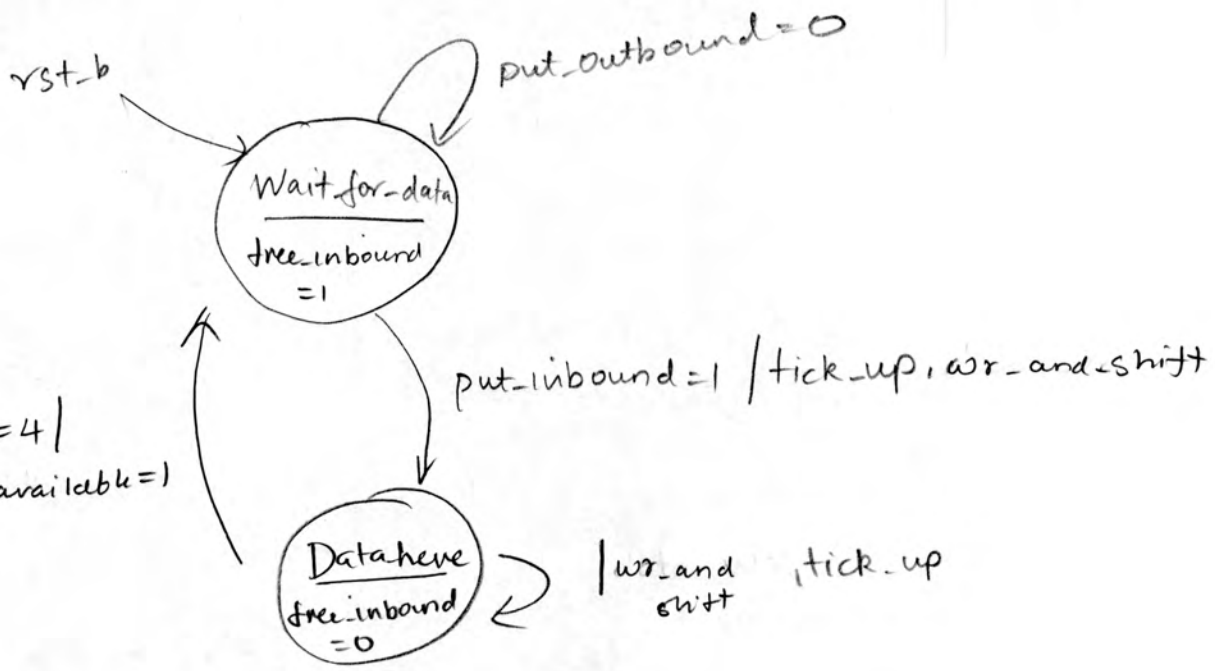 rst_b
put_outbound=0
Wait_for_data
free_inbound
=1
put_inbound=1 / tick_up, wr_and_shift
=4 |
available=1
Datahere
free_inbound
=0
| wr_and , tick_up
shift